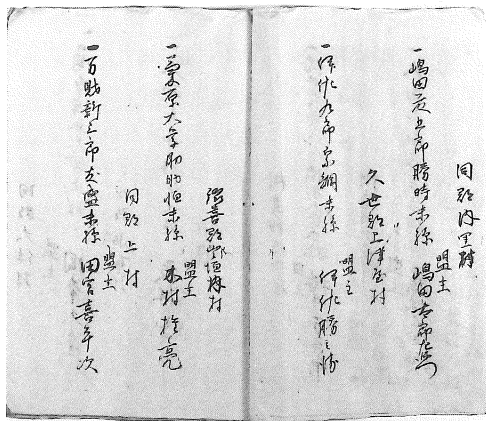 同郡内里村
盟主
一嶋田彦五郎勝時末孫 嶋田吉郎左衛門
久世郡上津屋村
盟主
一伊佐九郎家綱末孫 伊佐勝之進
綴喜郡 垣内村
盟主
一栗原大学助助恒末孫 木村按亮
同郡上村
盟主
一百助新三郎末盛末孫 田宮喜平次